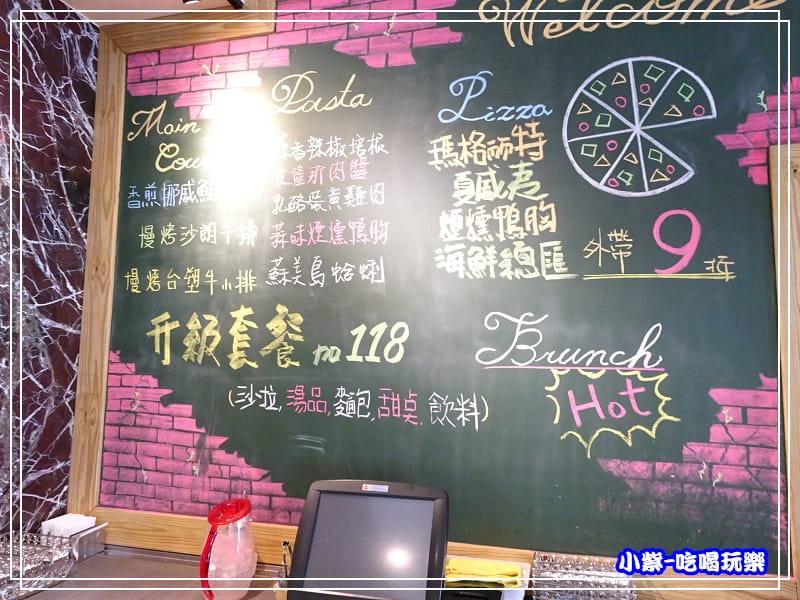 Welcome
Main
Cou
香煎挪威鮭
慢烤沙朗牛排
慢烤台塑牛小排
Pasta
香辣椒培根
茄肉醬
乳酪蛋黃雞肉
蒜味煙燻鴨胸
蘇美島蛤蜊
Pizza
瑪格麗特
夏威夷
煙燻鴨胸
海鮮總匯
外帶9折
升級套餐 no 118
(沙拉,湯品,麵包,甜點,飲料)
Brunch
Hot
小紫-吃喝玩樂